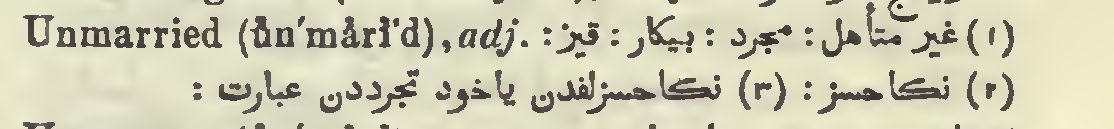 Unmarried (ŭn'mărĭ'd), adj. (۱) غیر متأهل : مجرد : بیکار : قیز :
(۲) نکاحسز : (۳) نکاحسزلفدن یاخود تجرددن عبارت :